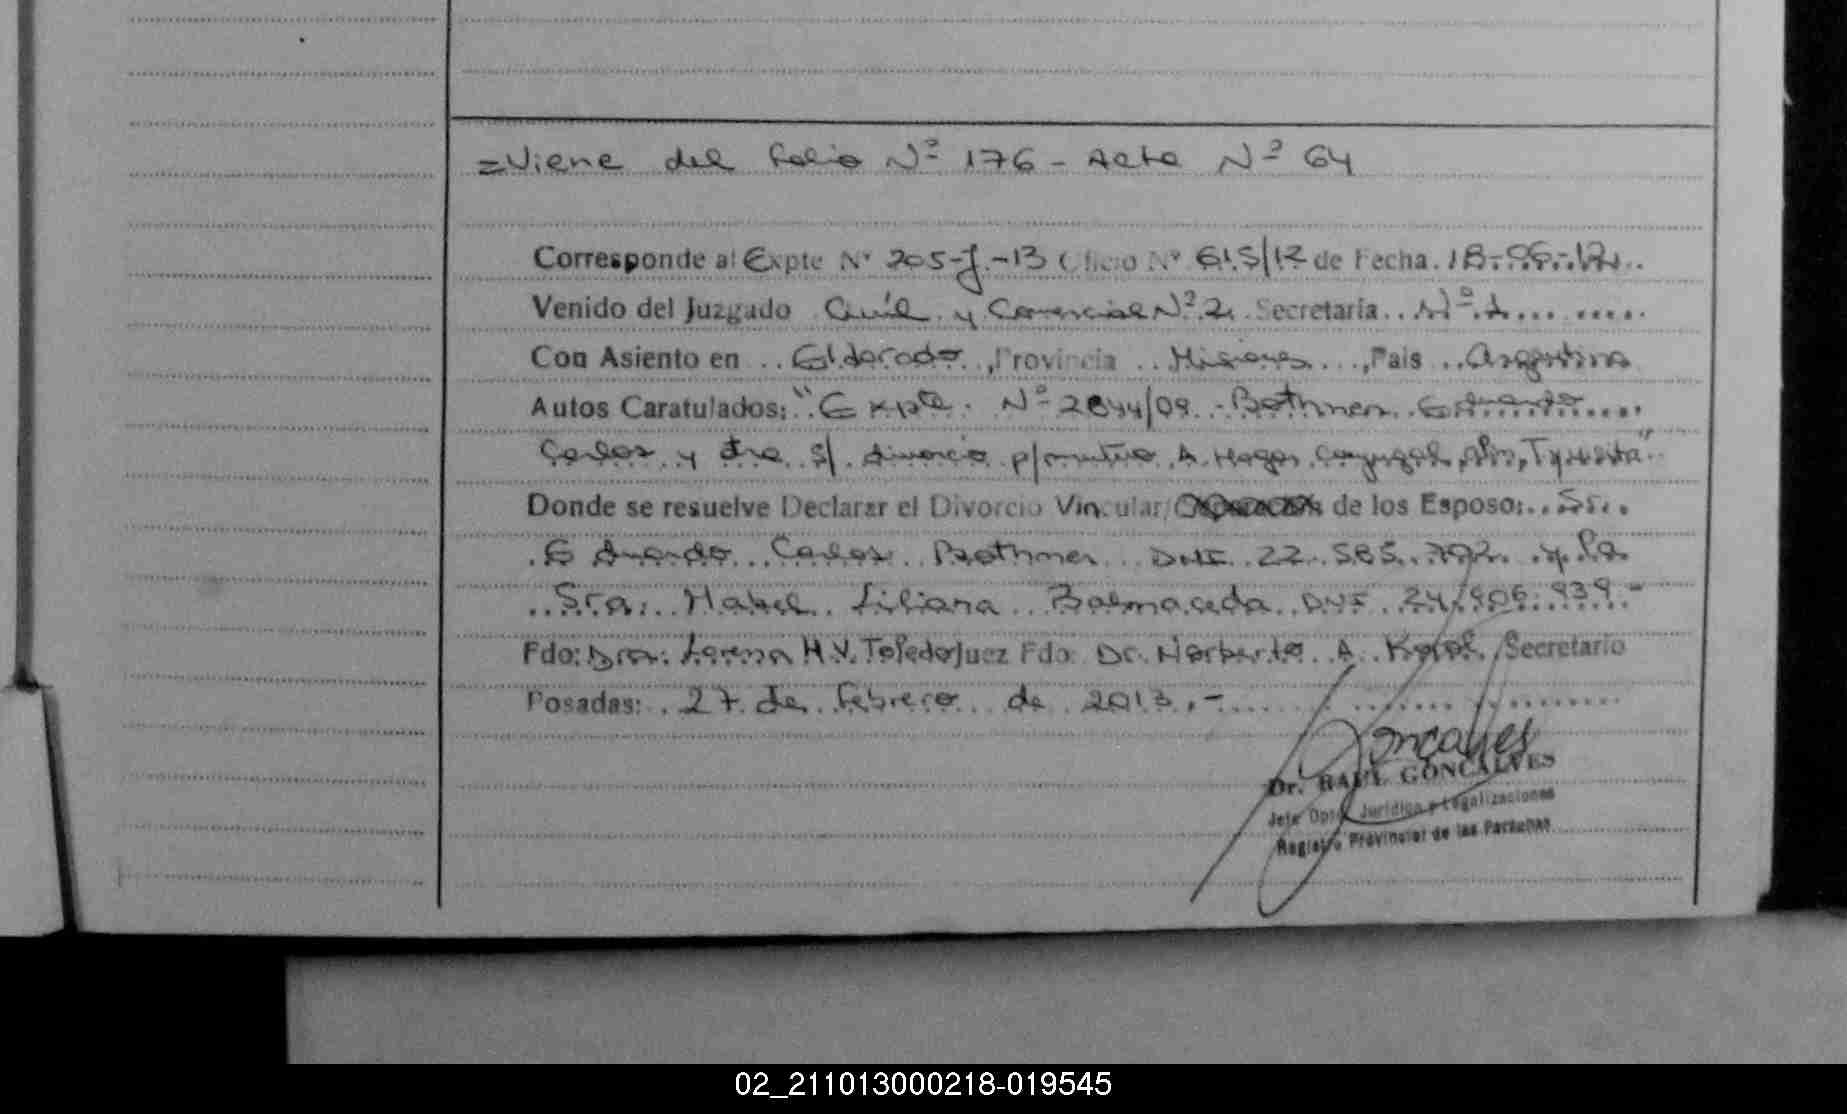 =Viene del folio Nº 176 - Acta Nº 64
Corresponde al Expte Nº 205-J-13 Oficio Nº 615/12 de Fecha. 18-06-12.
Venido del Juzgado Civil y Comercial Nº 2. Secretaría.. Nº 1
Con Asiento en ... Eldorado, Provincia .. Misiones ..., País .. Argentina
Autos Caratulados: "Expte. Nº 2844/09 - Bothner Eduardo
Carlos y otra S/ divorcio p/mutuo A. Hogar Conyugal,
Donde se resuelve Declarar el Divorcio Vincular/ de los Esposo: Sr.
Eduardo Carlos Bothner DNI 22.585.792 y la
Sra: Mabel Liliana Balmaceda DNI 24.906.939.-
Fdo: Dra: Lorena H.V. Toledo Juez Fdo: Dr. Norberto A. Korol. Secretario
Posadas: 27 de febrero de 2013.-
Goncalves
Dr. RAUL GONCALVES
Jefe Dpto. Jurídico y Legalizaciones
Registro Provincial de las Personas
02_211013000218-019545